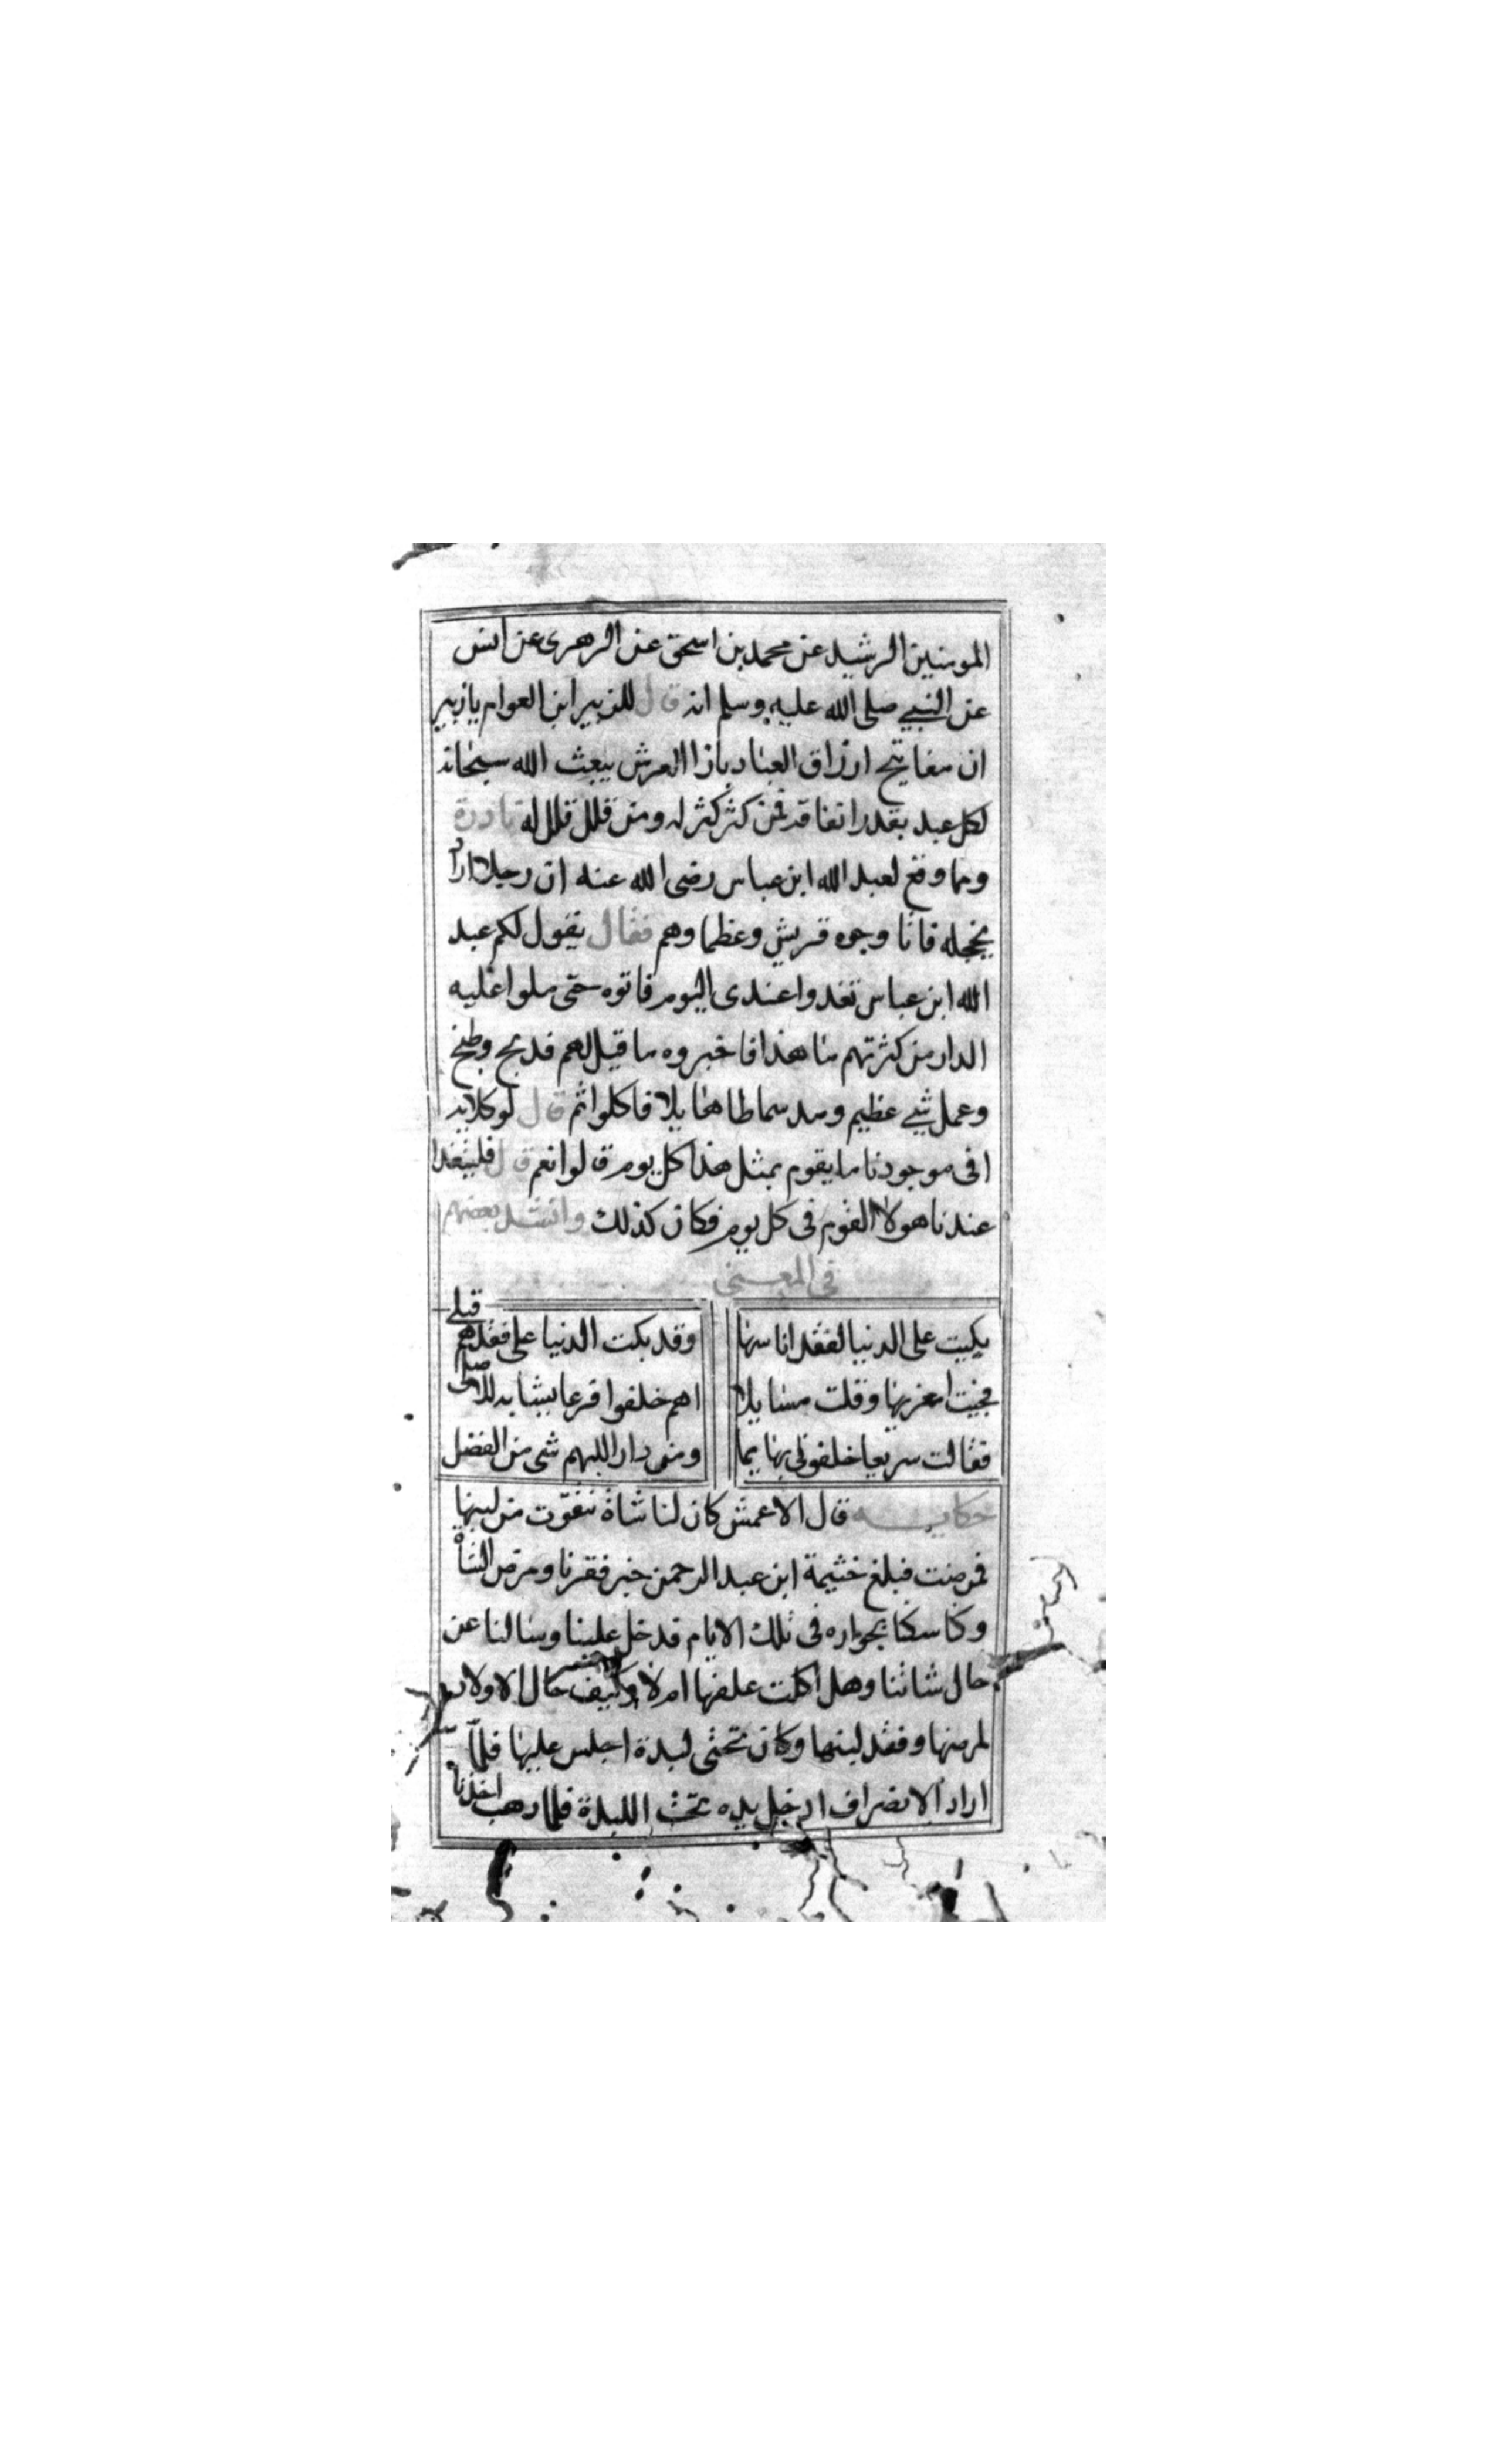 المومنين الرشيد عن محمد بن اسحق عن الزهرى عن انس
عن النبي صلى الله عليه وسلم انه قال للزبير ابن العوام يا زبير
ان مفاتيح ارزاق العباد بازا العرش يبعث الله سبحانه
لكل عبد بقدر انفاقه فمن كثر كثر له ومن قلل قلل له نادرة
ومما وقع لعبد الله ابن عباس رضى الله عنه ان رجلا اراد
يخجله فاتا وجوه قريش وعظماوهم فقال يقول لكم عبد
الله ابن عباس تغدوا عندى اليوم فاتوه حتى ملوا عليه
الدار من كثرتهم ما هذا فاخبروه ما قيل لهم فذبح وطبخ
وعمل شي عظيم ومد سماطا هايلا فاكلوا ثم قال لوكلايه
افى موجودنا ما يقوم بمثل هذا كل يوم قالوا نعم قال فليتغدا
عندنا هولا القوم فى كل يوم فكان كذلك وانشد بعضهم
فى المعنى
بكيت على الدنيا لفقد اناسها
وقد بكت الدنيا على فقدهم قبلى
فجيت اعزيها وقلت مسايلا
اهم خلفوا فرعا يشابه للاصلى
فقالت سريعا خلفونى بها يما
ومنى دار اللهم شى من الفضل
حكايه قال الاعمش كان لنا شاة نتقوت من لبنها
فمرضت فبلغ خثيمة ابن عبد الرحمن خبر فقرنا ومرض الشاة
وكنا سكنا بجواره فى تلك الايام فدخل علينا وسالنا عن
حال شاتنا وهل اكلت علفها ام لا وكيف حال الاولاد
لمرضها وفقد لبنها وكان تحتى لبدة اجلس عليها فلما
اراد الانصراف ادخل يده تحت اللبدة فلما ذهب اخذنا